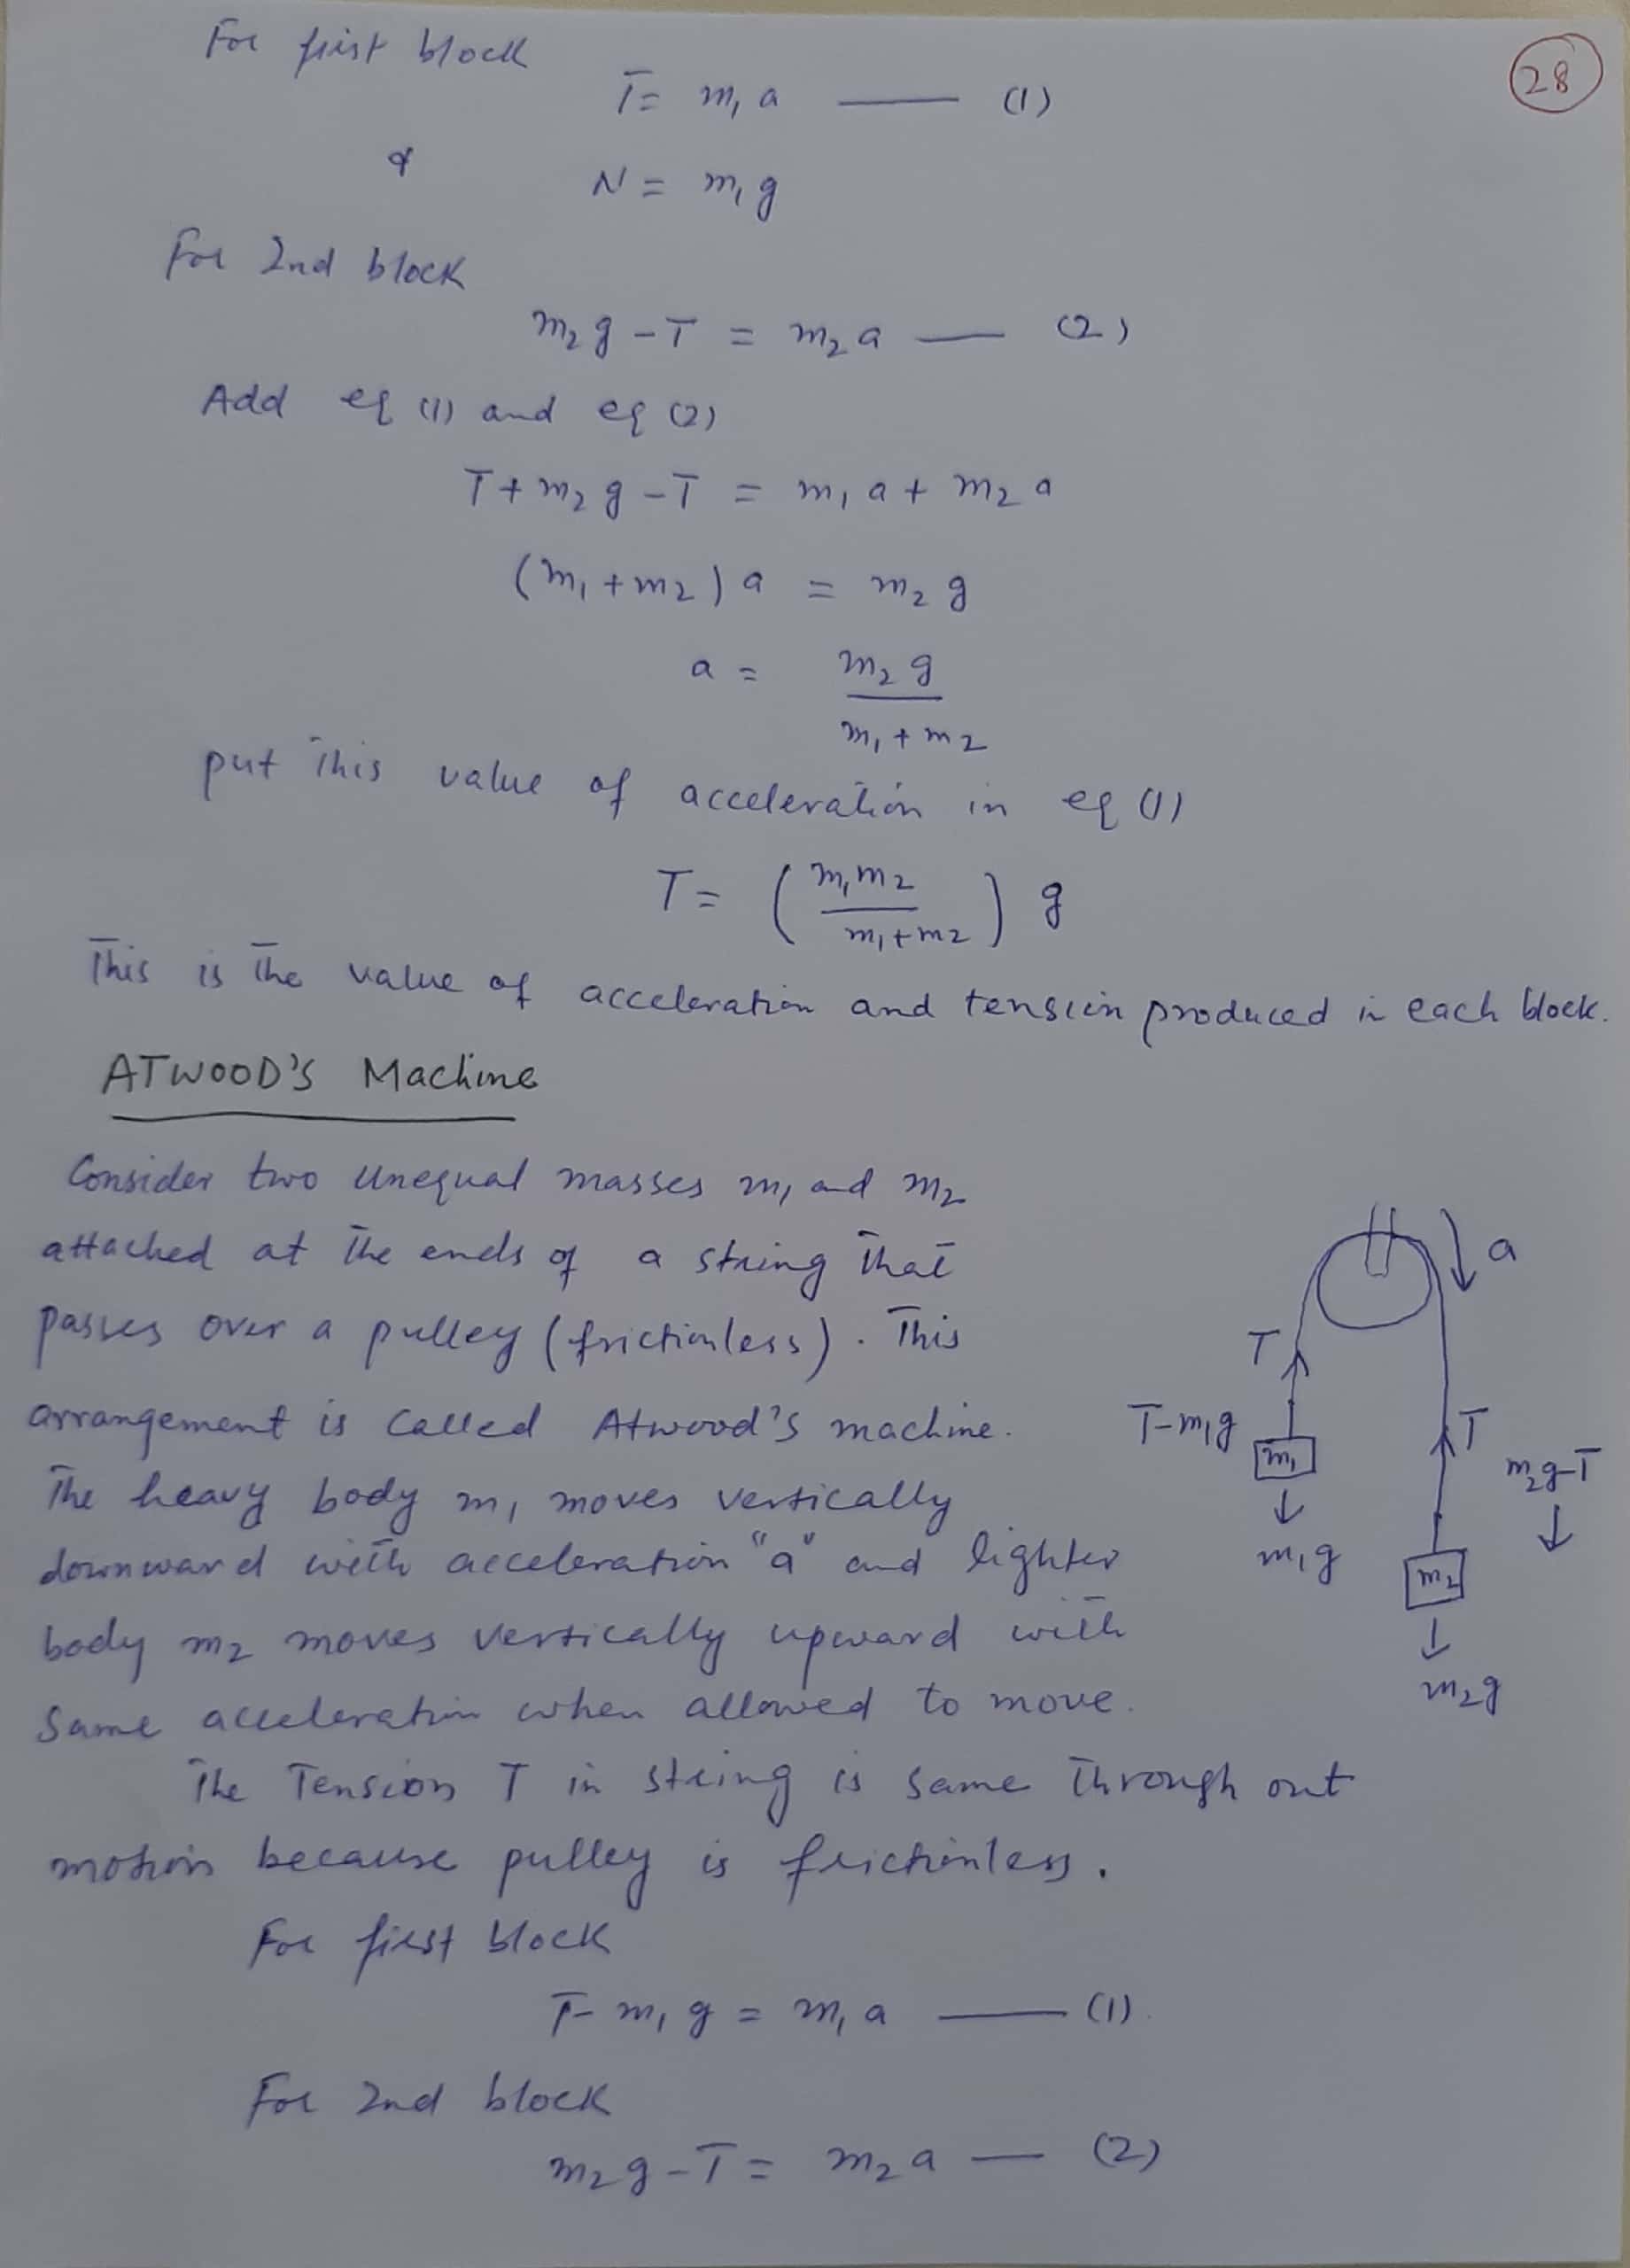 28
For first block
T = m₁ a —— (1)
& N = m₁ g
For 2nd block
m₂ g - T = m₂ a — (2)
Add eq (1) and eq (2)
T + m₂ g - T = m₁ a + m₂ a
(m₁ + m₂) a = m₂ g
a = m₂ g / m₁ + m₂
put this value of acceleration in eq (1)
T = (m₁ m₂ / m₁ + m₂) g
This is the value of acceleration and tension produced in each block.
ATWOOD'S Machine
Consider two unequal masses m₁ and m₂
attached at the ends of a string that
passes over a pulley (frictionless). This
arrangement is called Atwood's machine.
The heavy body m₁ moves vertically
downward with acceleration "a" and lighter
body m₂ moves vertically upward with
same acceleration when allowed to move.
a
T
T-m₁g
m₁
m₁g
T
m₂g-T
m₂
m₂g
The Tension T in string is same through out
motion because pulley is frictionless.
For first block
T - m₁ g = m₁ a —— (1).
For 2nd block
m₂g - T = m₂ a — (2)